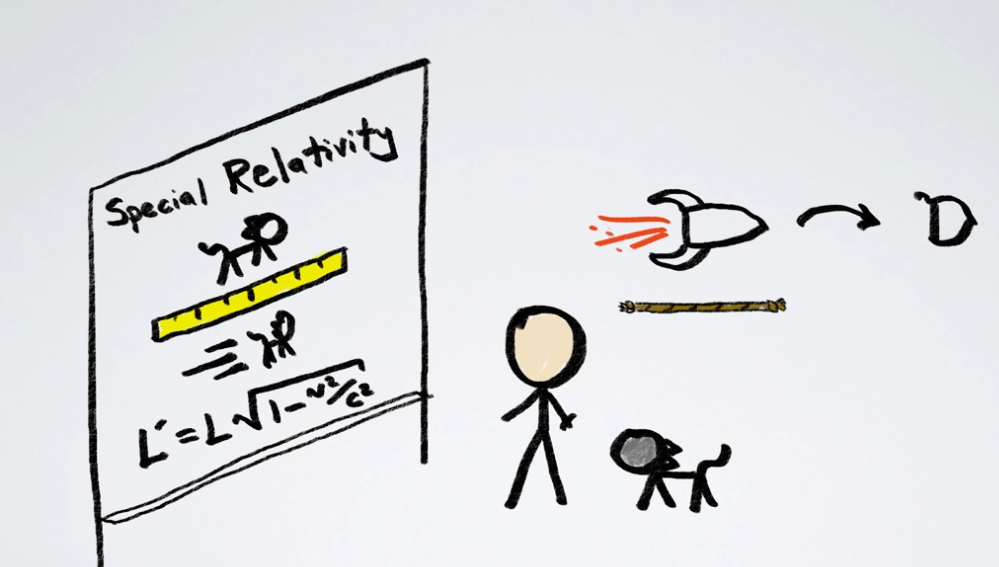 Special Relativity
L' = L√1-v²/c²